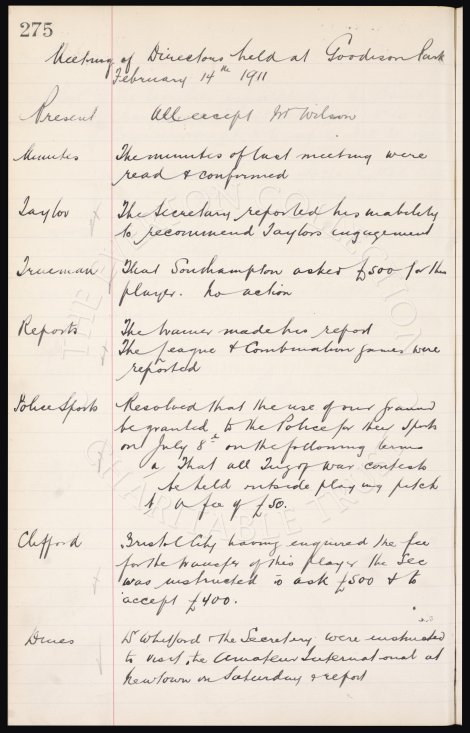 275
Meeting of Directors held at Goodison Park
February 14th 1911
Present All except Mr Wilson
Minutes The minutes of last meeting were
read & confirmed
Taylor The Secretary reported his inability
to recommend Taylors engagement
Trueman That Southampton asked £500 for this
player. No action
Reports The trainer made his report
The League & Combination games were
reported
Police Sports Resolved that the use of our ground
be granted to the Police for their Sports
on July 8th on the following terms
a That all Tug of War contests
be held outside playing pitch
b A fee of £50.
Clifford Bristol City having enquired the fee
for the transfer of this player the Sec
was instructed to ask £500 & to
accept £400.
Dr Whitford & the Secretary were instructed
to visit the Amateur International at
Newtown on Saturday & report
THE EVERTON COLLECTION
CHARITABLE TRUST